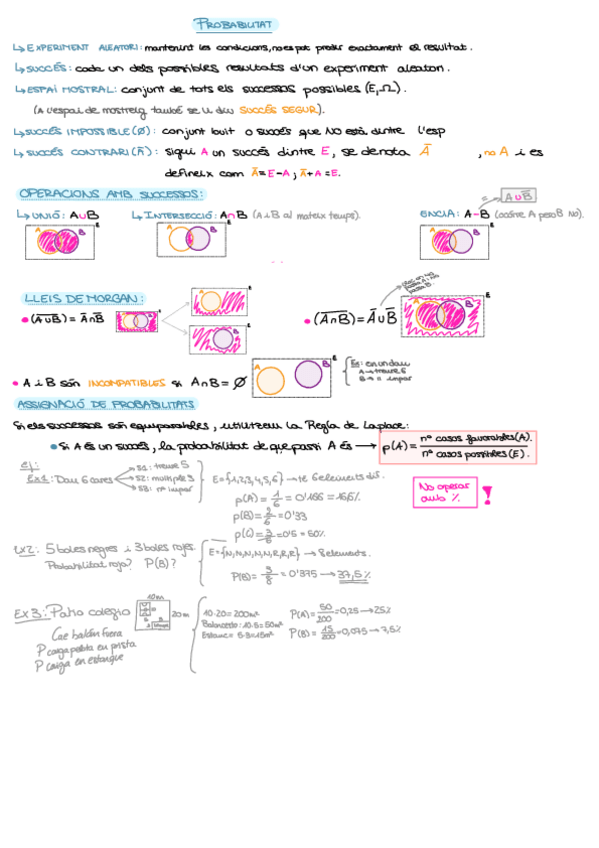 PROBABILITAT
↳ EXPERIMENT ALEATORI: mantenint les condicions, no es pot predir exactament el resultat.
↳ SUCCÉS: cada un dels possibles resultats d'un experiment aleatori.
↳ ESPAI MOSTRAL: conjunt de tots els successos possibles (E, Ω).
(A l'espai de mostreig també se li diu SUCCÉS SEGUR).
↳ SUCCÉS IMPOSSIBLE (Ø): conjunt buit o succés que NO està dintre l'esp
↳ SUCCÉS CONTRARI (Ā): sigui A un succés dintre E, se denota Ā , no A i es
defineix com Ā = E - A ; Ā + A = E.
OPERACIONS AMB SUCCESSOS:
= A∪B̅
↳ UNIÓ: A∪B ↳ INTERSECCIÓ: A∩B (A i B al mateix temps). ENCIA: A-B (ocórre A pero B NO).
A B E A B E A B E
LLEIS DE MORGAN:
• (A∪B)̅ = Ā∩B̅ • (A∩B)̅ = Ā∪B̅
• A i B són INCOMPATIBLES si A∩B = Ø
A B E
Ex: en un dau
A → treure 5
B → " impar
ASSIGNACIÓ DE PROBABILITATS
Si els successos són equiparables, utilitzem la Regla de Laplace:
• Si A és un succés, la probabilitat de que passi A és → p(A) = nº casos favorables (A). / nº casos possibles (E).
ej:
Ex1: Dau 6 cares
S1: treure 5
S2: multiple 3
S3: nº impar
E = {1,2,3,4,5,6} → té 6 elements dif.
p(A) = 1/6 = 0'166 = 16,6%
p(B) = 2/6 = 0'33
p(C) = 3/6 = 0'5 = 50%
No operar
amb %. !
Ex2: 5 boles negres i 3 boles rojes.
Probabilitat roja? P(B)?
E = {N,N,N,N,N,R,R,R} → 8 elements.
P(B) = 3/8 = 0'375 → 37,5%
Ex 3: Patio colegio
10m
20m
Cae balón fuera
P caiga pelota en pista
P caiga en estanque
10·20 = 200m²
Baloncesto: 10·5 = 50m²
Estanc = 5·3 = 15m²
P(A) = 50/200 = 0,25 → 25%
P(B) = 15/200 = 0,075 → 7,5%